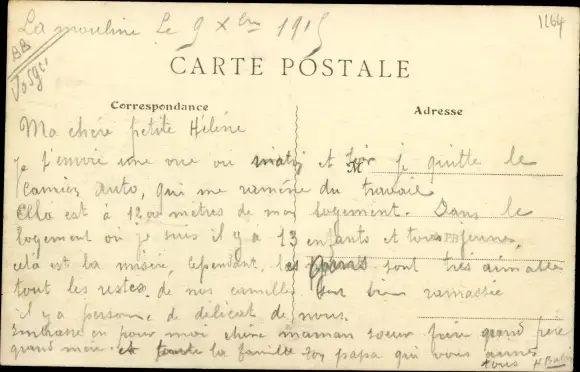 La mouline Le 9 Xbre 1915
1164
BB
Vosges
CARTE POSTALE
Correspondance
Adresse
Ma chère petite Hélène
Je t'envoie une vue ou matin et soir je quitte le
Camion auto, qui me ramène du travail
Elle est à 1200 mètres de mon logement. Dans le
logement ou je suis il y a 13 enfants et tous jeunes,
cela est la misère, cependant, les gens sont très aimable
tout les restes de nos gamelles sur bien ramassée
il y a personne de délicat de nous.
embrasse en pour moi chère maman soeur frère grand père
grand mère et toute la famille ton papa qui vous aime
tous